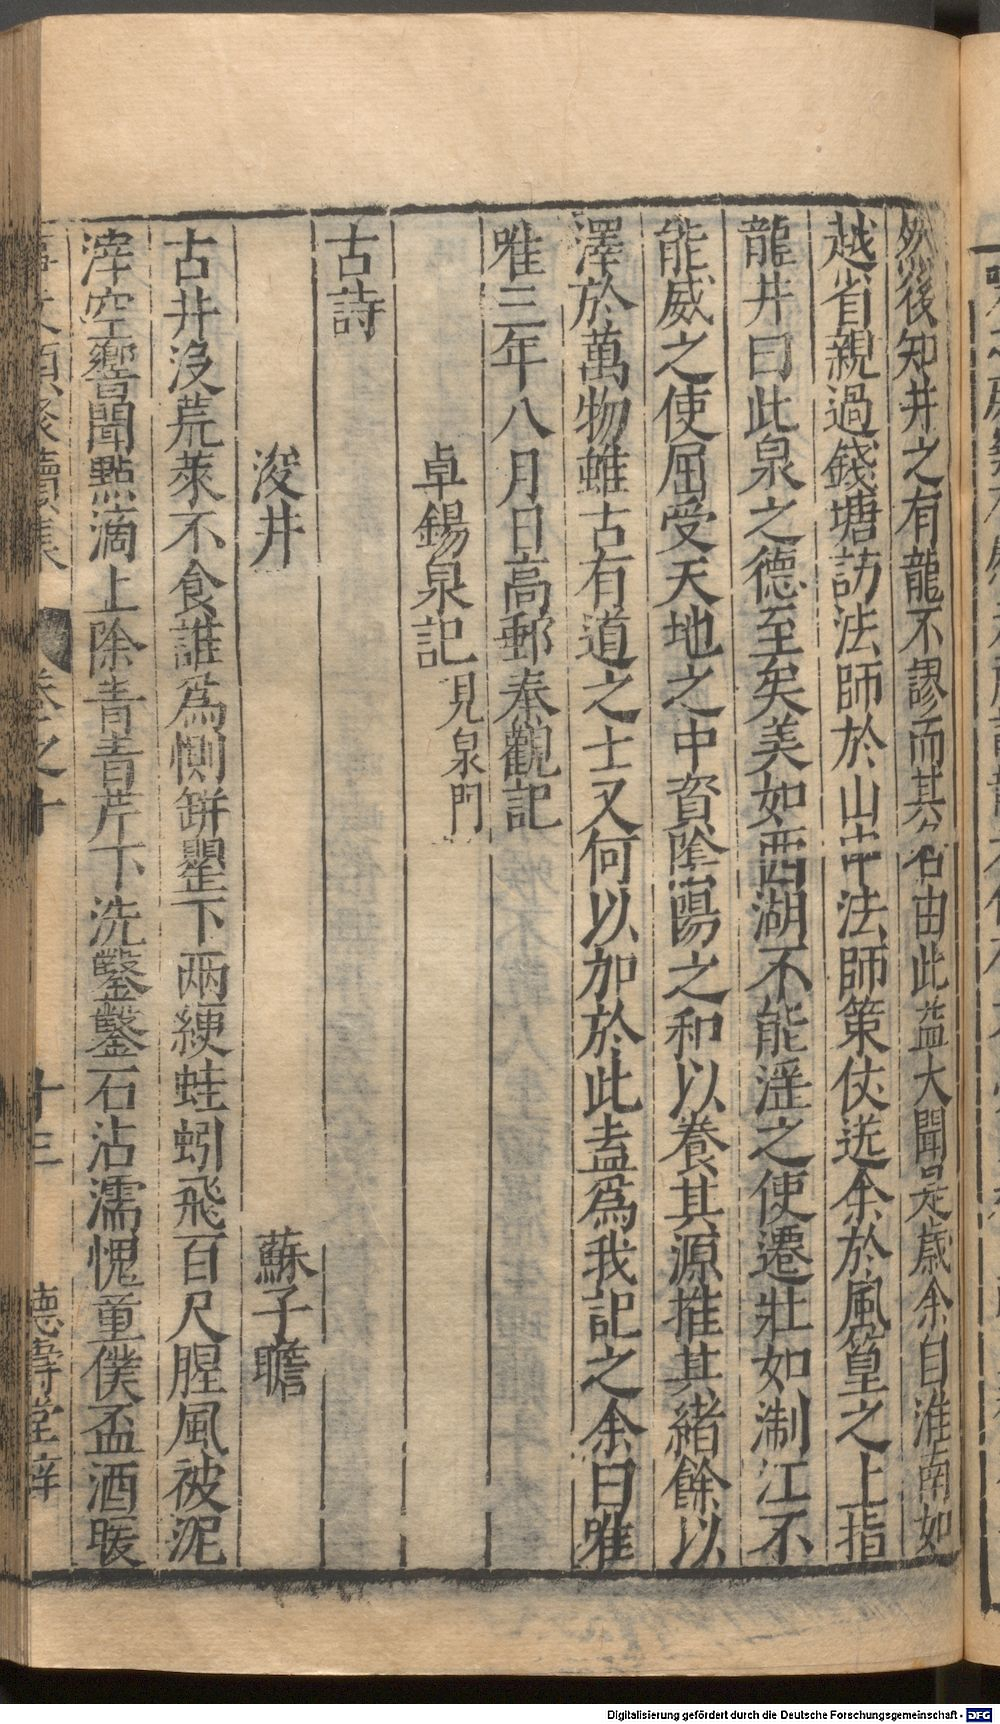 然後知井之有龍不謬而其名由此益大聞是歲余自淮南如
越省親過錢塘訪法師於山中法師策伏送余於風篁之上指
龍井曰此泉之德至矣美如西湖不能淫之使遷壯如淛江不
能威之使屈受天地之中資隂陽之和以養其源推其緒餘以
澤於萬物雖古有道之士又何以加於此盍為我記之余曰唯
唯三年八月日高郵秦觀記
卓錫泉記見泉門
古詩
浚井 蘇子瞻
古井沒荒萊不食誰爲惻缾罌下兩綆蛙蚓飛百尺腥風被泥
滓空響聞點滴上除青青芹下洗鑿鑿石沾濡愧童僕盃酒暖
事文類聚續集 卷之十 十三 德壽堂梓
Digitalisierung gefördert durch die Deutsche Forschungsgemeinschaft - DFG